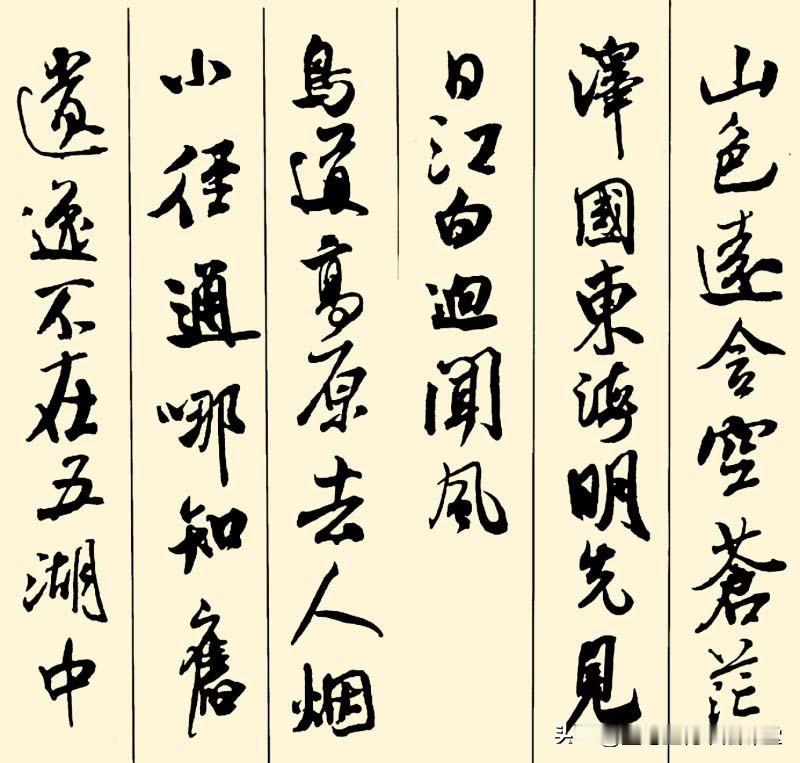 山色遠含空蒼茫
澤國東海明先見
日江白迥聞風
鳥道高原去人烟
小径通哪知舊
遺逸不在五湖中
头